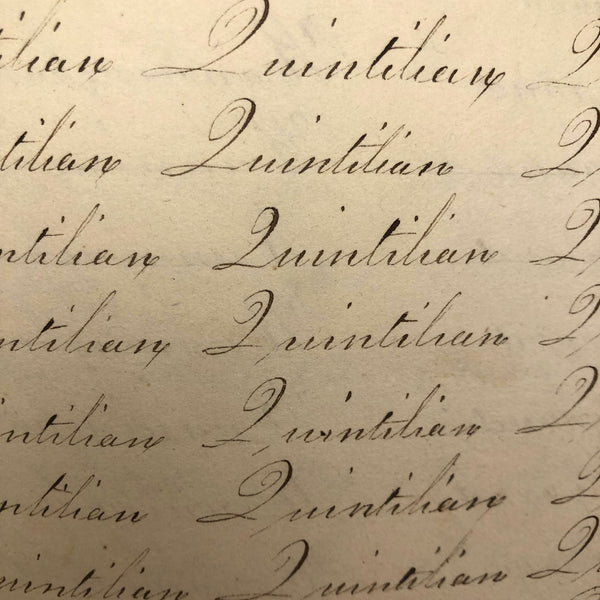 tilian Quintilian Q
tilian Quintilian Q
ntilian Quintilian Q
ntilian Quintilian Q
intilian Quintilian Q
ntilian Quintilian Q
uintilian Quintilian Q